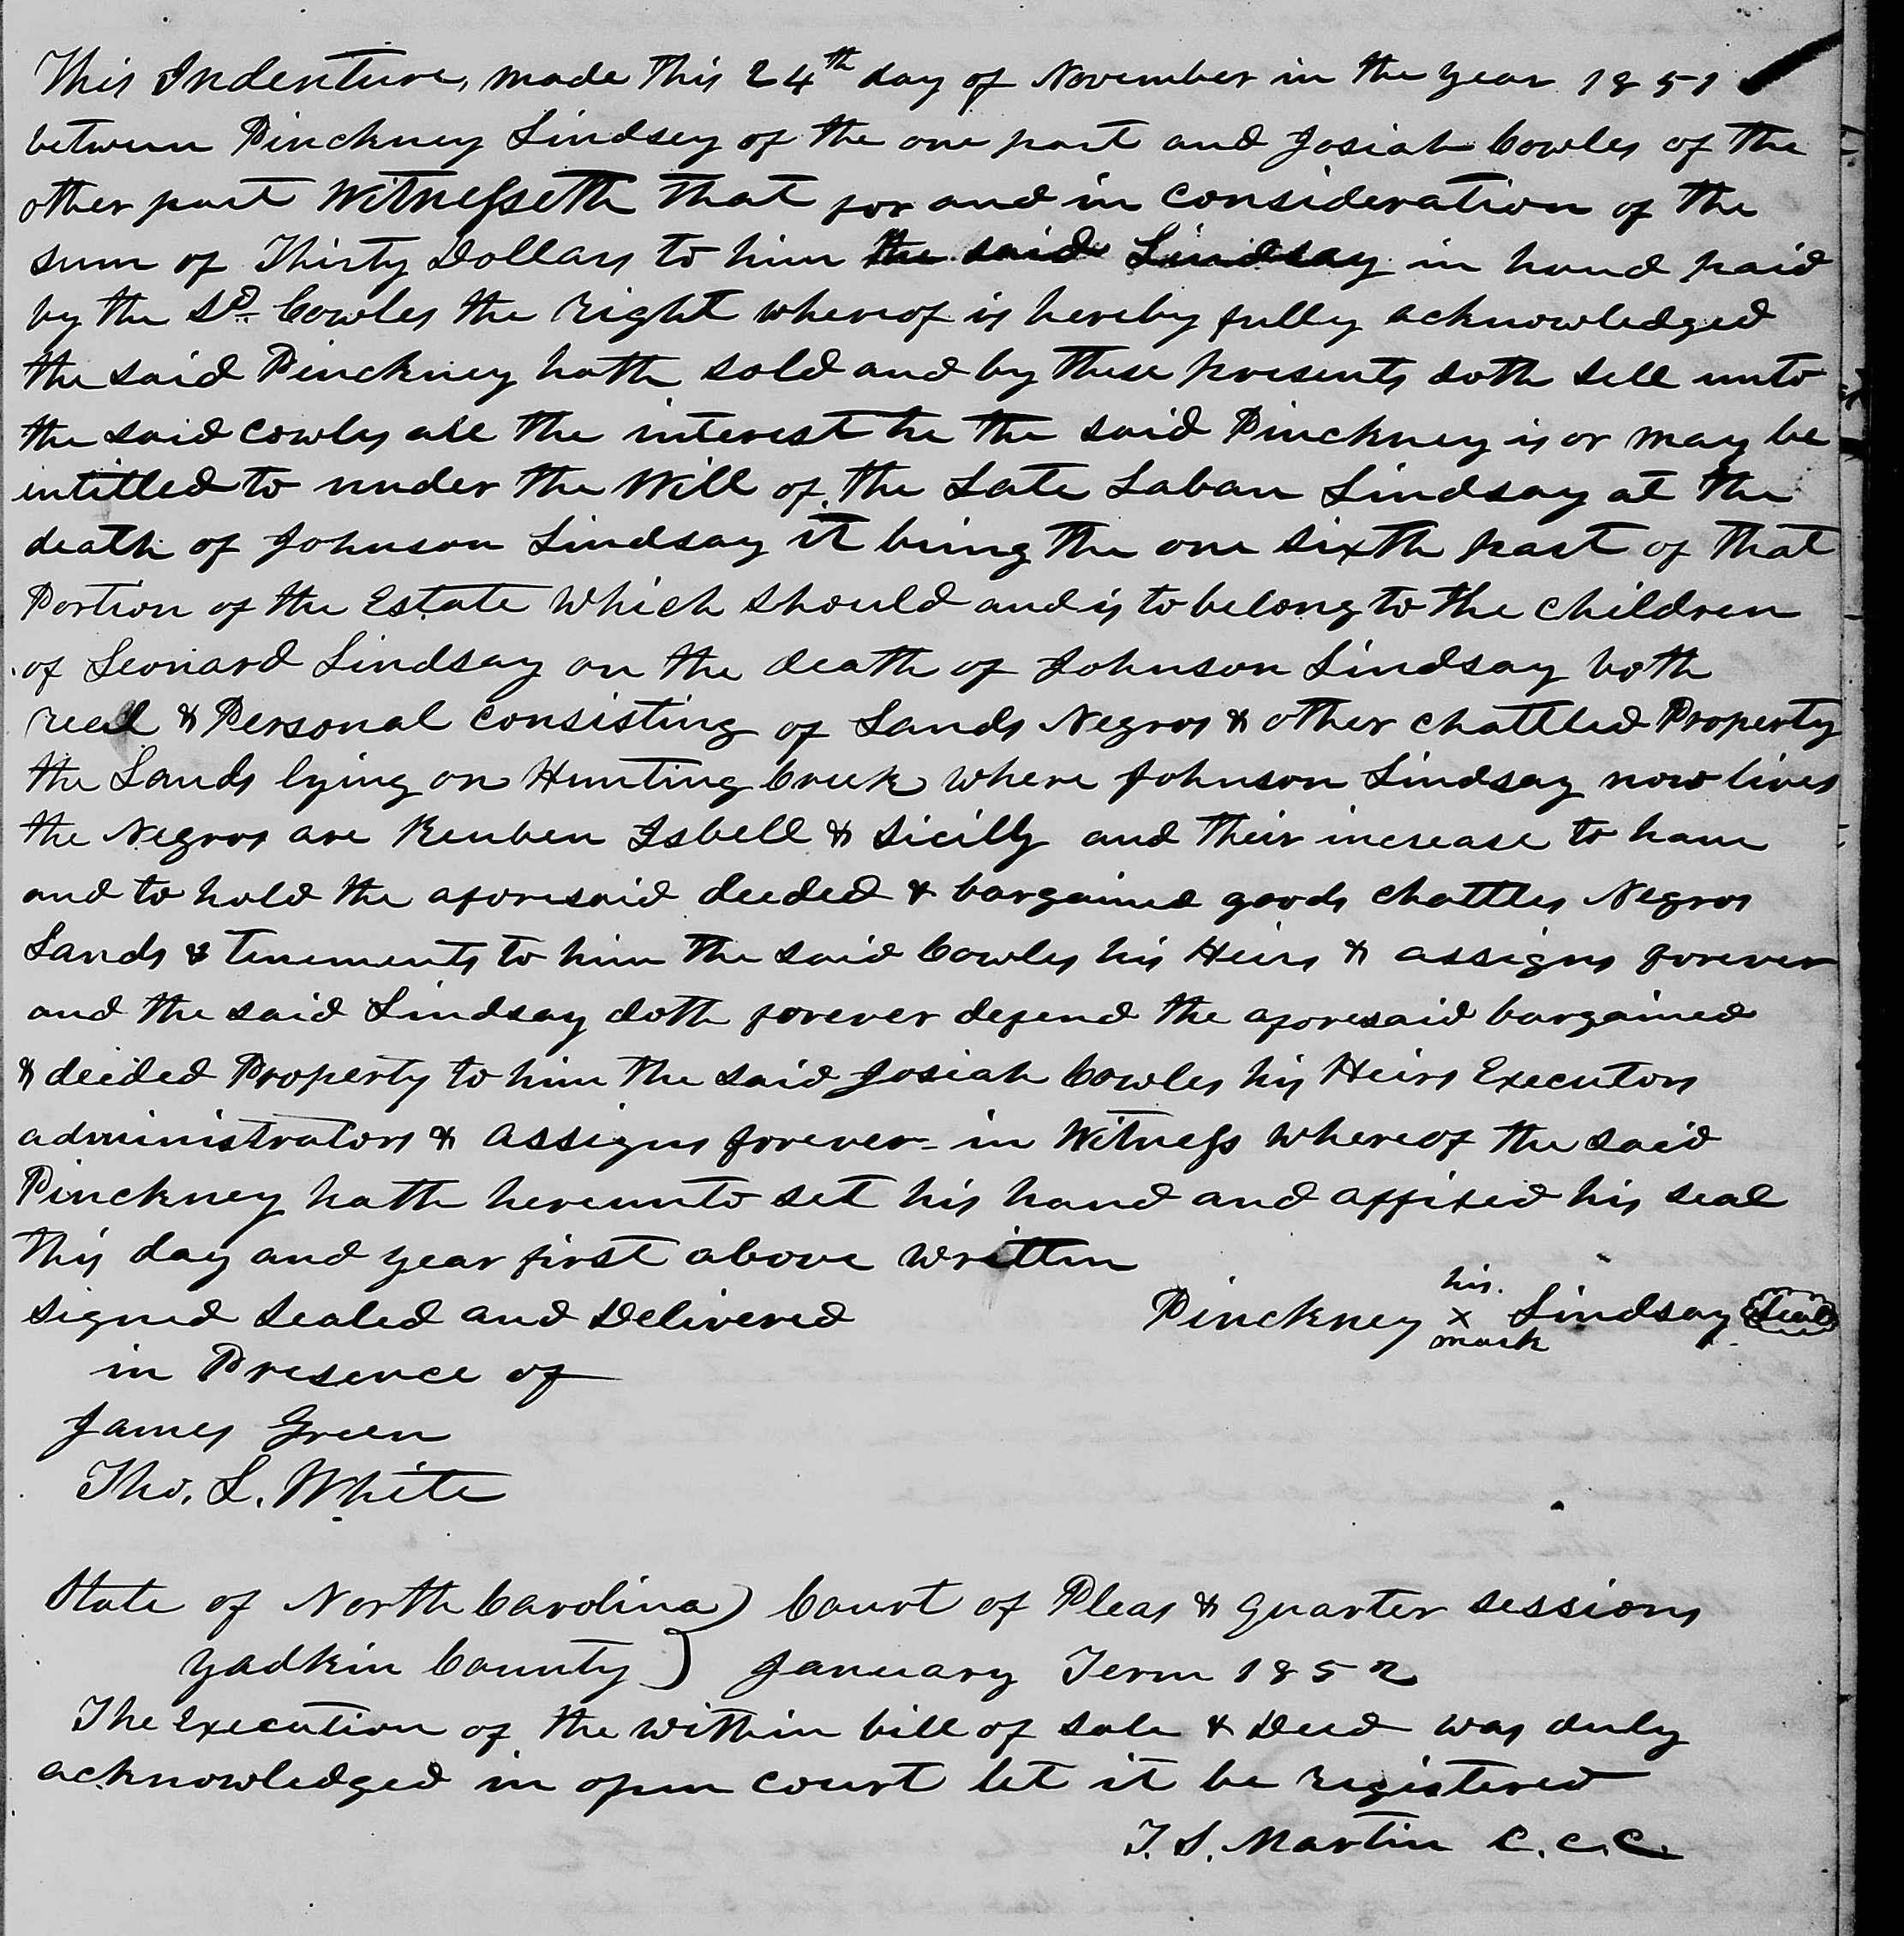 This Indenture, made this 24th day of November in the year 1851
between Pinckney Lindsey of the one part and Josiah Cowles of the
other part Witnesseth that for and in consideration of the
sum of Thirty Dollars to him the said Lindsay in hand paid
by the Sd. Cowles the right whereof is hereby fully acknowledged
the said Pinckney hath sold and by these presents doth sell unto
the said Cowles all the interest he the said Pinckney is or may be
intitled to under the Will of the Late Laban Lindsay at the
death of Johnson Lindsay it being the one sixth part of that
Portion of the Estate which should and is to belong to the children
of Leonard Lindsay on the death of Johnson Lindsay both
real & Personal consisting of Lands Negros & other chattled Property
the Lands lying on Hunting Creek where Johnson Lindsay now lives
the Negros are Reuben Isbell & Sicilly and their increase to have
and to hold the aforesaid deeded & bargained goods chattles Negros
Lands & tenements to him the said Cowles his Heirs & assigns forever
and the said Lindsay doth forever defend the aforesaid bargained
& deeded Property to him the said Josiah Cowles his Heirs Executors
administrators & assigns forever - in Witness whereof the said
Pinckney hath hereunto set his hand and affixed his seal
this day and year first above written
signed sealed and Delivered
in Presence of
Pinckney his x mark Lindsay Seal
James Green
Tho. L. White
State of North Carolina) Court of Pleas & quarter sessions
Yadkin County) January Term 1852
The Execution of the within bill of sale & Deed was duly
acknowledged in open court let it be registered
T. S. Martin C.C.C.